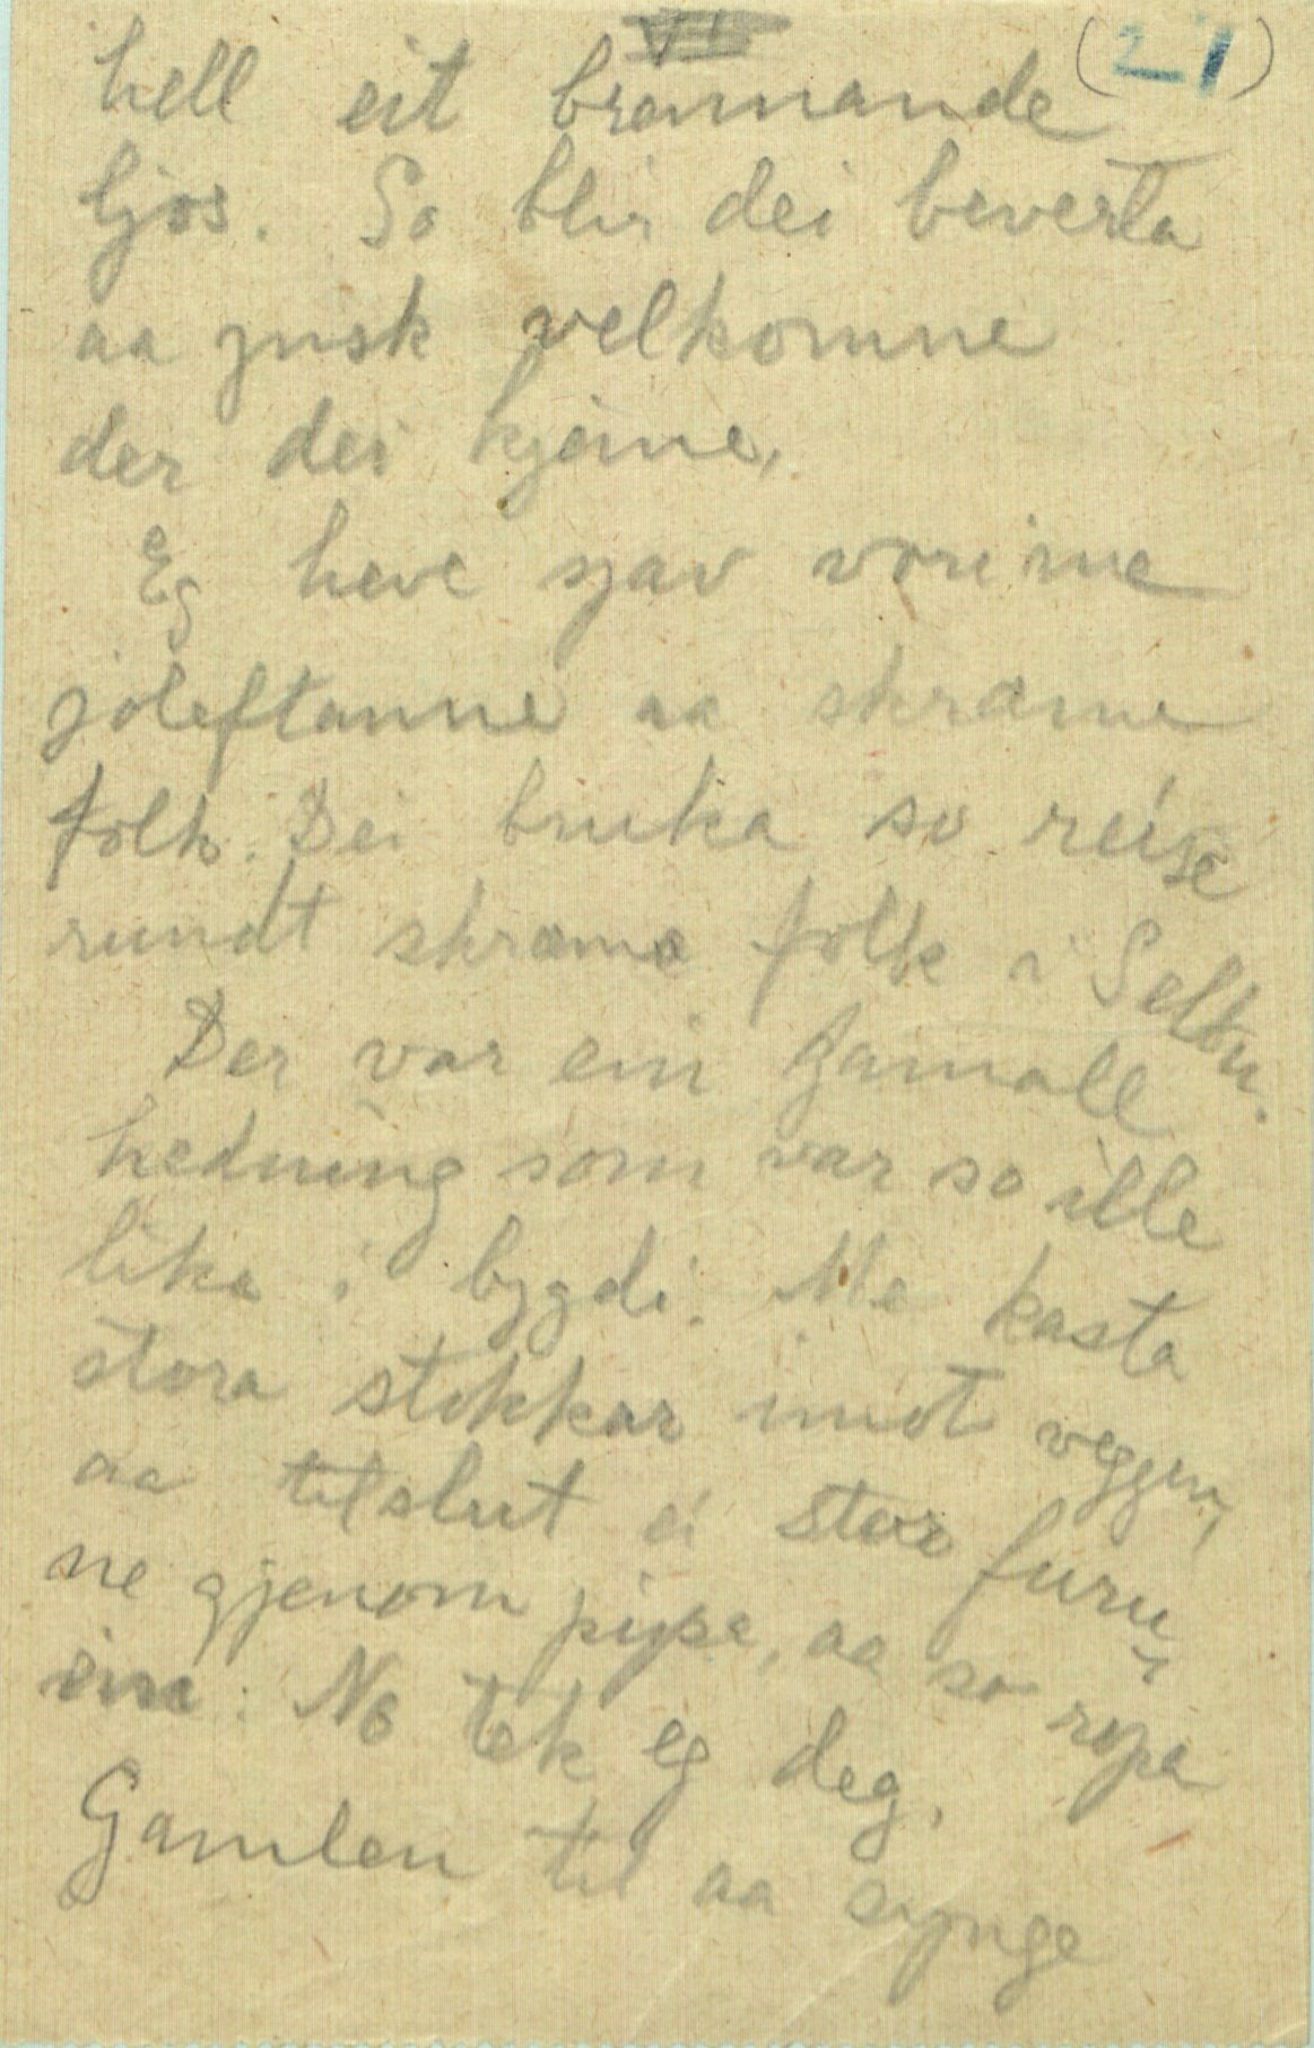 (21)
hell eit brennande
ljos. So blir dei beverta
aa ynsk velkomne
der dei kjeme,
Eg heve sjav vori me
joleftanne aa skræme
folk. Dei bruka so reise
rundt skræma folk i Selbu.
Der var ein gamall
hedning som var so ille
lika i bygdi. Me kasta
stora stokkar imot veggen,
aa tilslut ei stor furu,
ne gjenom pipa, aa so ropa
ein: No tek eg deg.
Gamlen til aa synge